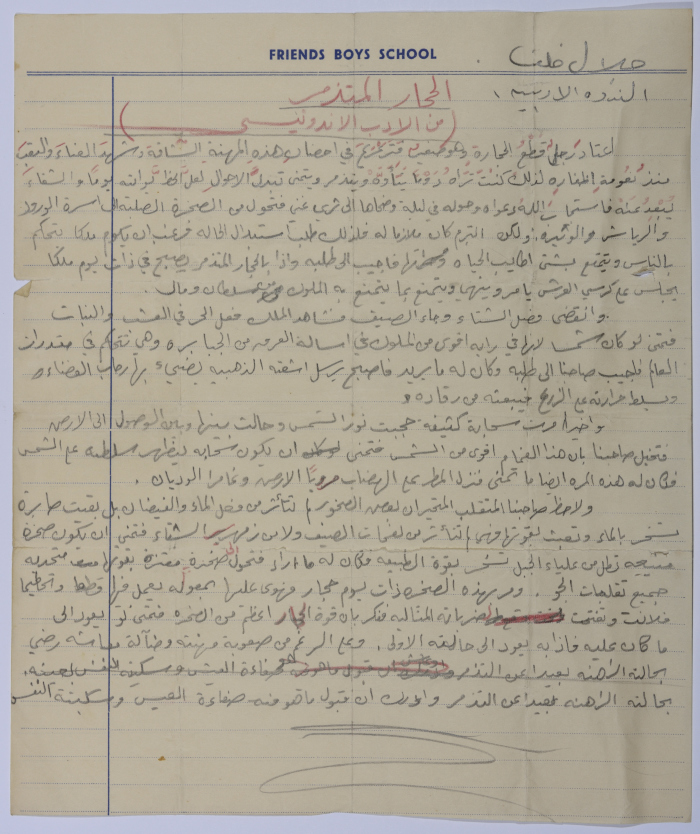 FRIENDS BOYS SCHOOL
جلال خلف
الندوه الادبيه
الحجار المتذمر
(من الادب الاندونيسي)
اعتاد رجل قطع الحجارة وهو صغير في احضان هذه المهنة الشاقة
منذ نعومة اظفاره لذلك كنت تراه دوما يتأوه ويتذمر ويتمنى تبدل الاحوال لعل الحظ يواتيه يوما والشقاء
يبتعد عنه فاستجاب الله دعواه وحوله في ليلة وضحاها الى ثري غني فتحول من الصخرة الصلبة الى اسرة الورود
والرياش والوثيرة. ولكن التبرم كان ملازما له فلذلك طلب استبدال الحاله فرغب ان يكون ملكا يتحكم
بالناس ويتمتع بشتى اطايب الحياه فاجيب الى طلبه واذا بالحجار المتذمر يصبح في ذات يوم ملكا
يجلس على كرسي العرش يامر وينهي ويتمتع بما يتمتع به الملوك من سلطان ومال.
وانقضى فصل الشتاء وجاء الصيف فشاهد الملك فعل الحر في العشب والنبات
فتمنى لو كان شمسا لانها في رايه اقوى من الملوك في اسالة العرق من الجبابره وهي تتحكم في مقدرات
العالم فاجيب صاحبنا الى طلبه وكان له ما يريد فاصبح يرسل اشعته الذهبيه يضيء بها رحاب الفضاء
ويسلط حرارته على الزرع فيبعثه من رقاده
واخيرا مرت سحابة كثيفة حجبت نور الشمس وحالت بينها وبين الوصول الى الارض
فتخيل صاحبنا بان هذا الغمام اقوى من الشمس فتمنى ان يكون سحابه ليظهر سلطته على الشمس
فكان له هذه المره ايضا ما تمنى فنزل المطر على الهضاب مرويا الارض وغامرا الوديان.
ولاحظ صاحبنا المتقلب المتغير ان بعض الصخور لم تتأثر من فعل الماء والفيضان بل بقيت صابرة
تسخر بالماء وتعبث بقوتها فهي لم تتأثر من لفحات الصيف ولا من زمهرير الشتاء فتمنى ان يكون صخرة
تطل من علياء الجبل تسخر بقوة الطبيعه فكان له ما اراد فتحول الى صخرة مغترة بقوتها متحديه
جميع تقلبات الجو. ومر بهذه الصخره ذات يوم حجار فهوى عليها بمعوله يعمل فيها قطعا وتحطيما
فلانت وتفتت بضرباته المتتاليه ففكر بان قوة الحجار اعظم من الصخره فتمنى لو يعود الى
ما كان عليه فاذا به يعود الى حالته الاولى. وعلى الرغم من صعوبة مهنته وضآلة معاشه رضي
بحالته الراهنه بعيدا عن التذمر
بحالته الراهنه بعيدا عن التذمر وادرك ان قبول ما هو فيه سعادة العيش وسكينة النفس